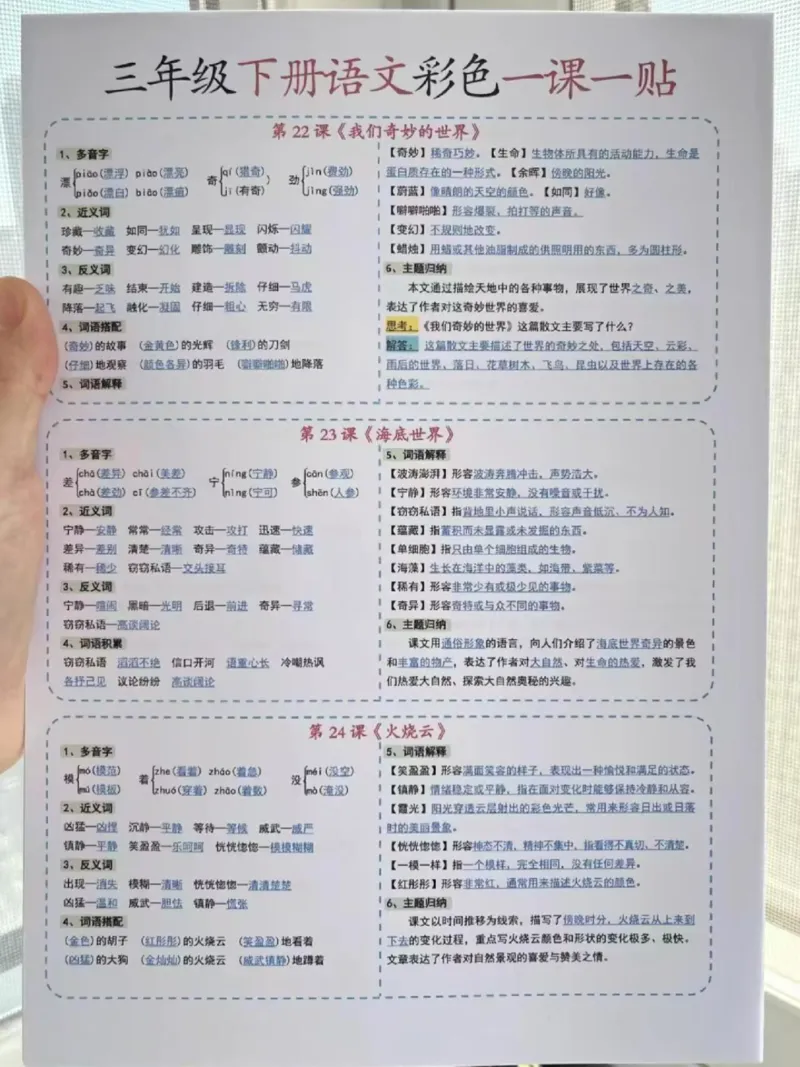 三年级下册语文彩色一课一贴
第22课《我们奇妙的世界》
1、多音字
漂 piāo(漂浮) piào(漂亮)
piǎo(漂白) biāo(漂瘺)
奇 qí(猎奇)
jī(有奇)
劲 jìn(费劲)
jìng(强劲)
2、近义词
珍藏—收藏 如同—犹如 呈现—显现 闪烁—闪耀
奇妙—奇异 变幻—幻化 雕饰—雕刻 颤动—抖动
3、反义词
有趣—乏味 结束—开始 建造—拆除 仔细—马虎
降落—起飞 融化—凝固 仔细—粗心 无穷—有限
4、词语搭配
(奇妙)的故事 (金黄色)的光辉 (锋利)的刀剑
(仔细)地观察 (颜色各异)的羽毛 (噼噼啪啪)地降落
5、词语解释
【奇妙】稀奇巧妙。【生命】生物体所具有的活动能力，生命是
蛋白质存在的一种形式。【余晖】傍晚的阳光。
【蔚蓝】像晴朗的天空的颜色。【如同】好像。
【噼噼啪啪】形容爆裂，拍打等的声音。
【变幻】不规则地改变。
【蜡烛】用蜡或其他油脂制成的供照明用的东西，多为圆柱形。
6、主题归纳
本文通过描绘天地中的各种事物，展现了世界之奇、之美，
表达了作者对这奇妙世界的喜爱。
思考：《我们奇妙的世界》这篇散文主要写了什么？
解答：这篇散文主要描述了世界的奇妙之处，包括天空、云彩、
雨后的世界、落日、花草树木，飞鸟、昆虫以及世界上存在的各
种色彩。
第23课《海底世界》
1、多音字
差 chā(差异) chāi(美差)
chà(差劲) cī(参差不齐)
宁 níng(宁静)
nìng(宁可)
参 cān(参观)
shēn(人参)
2、近义词
宁静—安静 常常—经常 攻击—攻打 迅速—快速
差异—差别 清楚—清晰 奇异—奇特 蕴藏—储藏
稀有—稀少 窃窃私语—交头接耳
3、反义词
宁静—喧闹 黑暗—光明 后退—前进 奇异—寻常
窃窃私语—高谈阔论
4、词语积累
窃窃私语 滔滔不绝 信口开河 语重心长 冷嘲热讽
各抒己见 议论纷纷 高谈阔论
5、词语解释
【波涛澎湃】形容波涛奔腾冲击，声势浩大。
【宁静】形容环境非常安静，没有噪音或干扰。
【窃窃私语】指背地里小声说话，形容声音低沉、不为人知。
【蕴藏】指蓄积而未显露或未发掘的东西。
【单细胞】指只由单个细胞组成的生物。
【海藻】生长在海洋中的藻类，如海带、紫菜等。
【稀有】形容非常少有或极少见的事物。
【奇异】形容奇特或与众不同的事物。
6、主题归纳
课文用通俗形象的语言，向人们介绍了海底世界奇异的景色
和丰富的物产，表达了作者对大自然、对生命的热爱，激发了我
们热爱大自然、探索大自然奥秘的兴趣。
第24课《火烧云》
1、多音字
模 mó(模范)
mú(模板)
着 zhe(看着) zháo(着急)
zhuó(穿着) zhāo(着数)
没 méi(没空)
mò(淹没)
2、近义词
凶猛—凶悍 沉静—平静 等待—等候 威武—威严
镇静—平静 笑盈盈—乐呵呵 恍恍惚惚—模模糊糊
3、反义词
出现—消失 模糊—清晰 恍恍惚惚—清清楚楚
凶猛—温和 威武—胆怯 镇静—慌张
4、词语搭配
(金色)的胡子 (红彤彤)的火烧云 (笑盈盈)地看着
(凶猛)的大狗 (金灿灿)的火烧云 (威武镇静)地蹲着
5、词语解释
【笑盈盈】形容满面笑容的样子，表现出一种愉悦和满足的状态。
【镇静】情绪稳定或平静，指在面对变化时能够保持冷静和从容。
【霞光】阳光穿透云层射出的彩色光芒，常用来形容日出或日落
时的美丽景象。
【恍恍惚惚】形容神态不清，精神不集中，指看得不真切、不清楚。
【一模一样】指一个模样，完全相同，没有任何差异。
【红彤彤】形容非常红，通常用来描述火烧云的颜色。
6、主题归纳
课文以时间推移为线索，描写了傍晚时分，火烧云从上来到
下去的变化过程，重点写火烧云颜色和形状的变化极多、极快。
文章表达了作者对自然景观的喜爱与赞美之情。